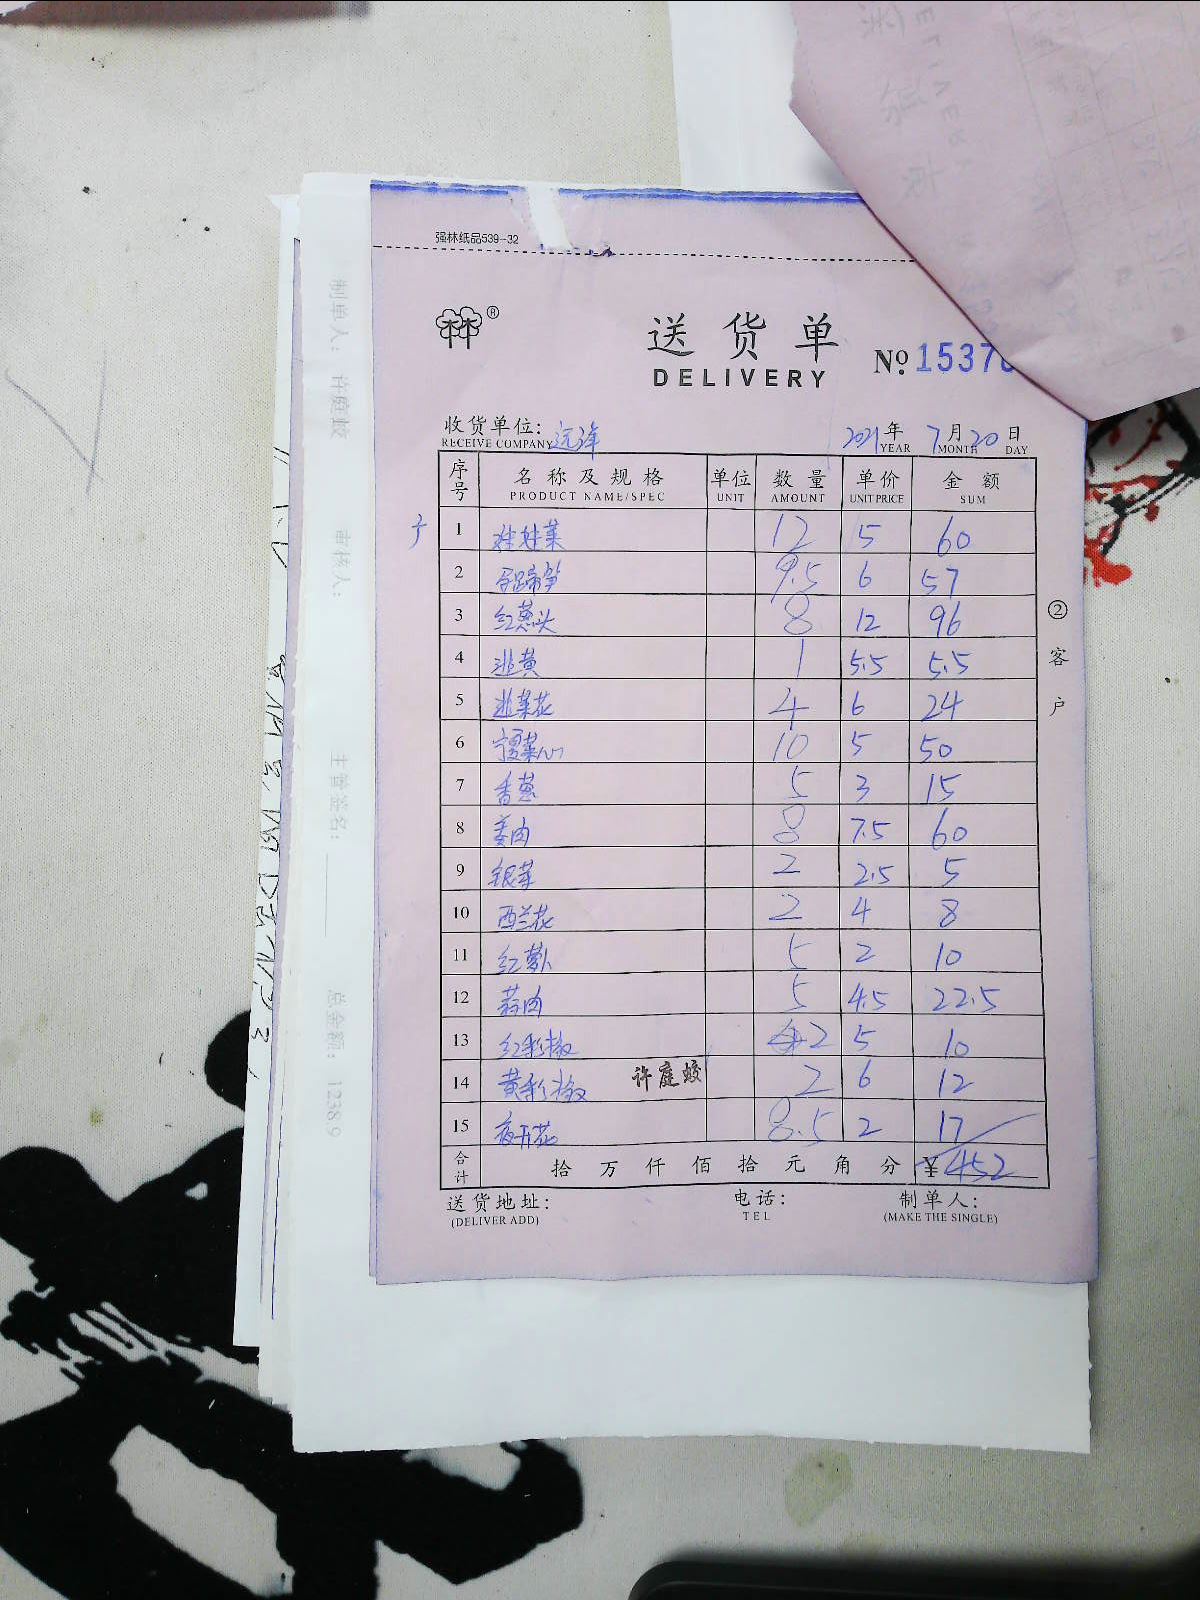 强林纸品539-32
林®
送货单
DELIVERY
№ 1537
收货单位: 远洋 2021年 7月 20日
RECEIVE COMPANY YEAR MONTH DAY
序号 名称及规格 单位 数量 单价 金额
PRODUCT NAME/SPEC UNIT AMOUNT UNIT PRICE SUM
1 娃娃菜 12 5 60
2 马蹄笋 9.5 6 57
3 红葱头 8 12 96
4 韭黄 1 5.5 5.5
5 韭菜花 4 6 24
6 宁夏菜心 10 5 50
7 香葱 5 3 15
8 姜肉 8 7.5 60
9 银芽 2 2.5 5
10 西兰花 2 4 8
11 红萝卜 5 2 10
12 蒜肉 5 4.5 22.5
13 红彩椒 2 5 10
14 黄彩椒 许庭蛟 2 6 12
15 夜开花 8.5 2 17
合计 拾万仟佰拾元角分 ¥452
送货地址: 电话: 制单人:
(DELIVER ADD) TEL (MAKE THE SINGLE)
② 客户
制单人: 许庭蛟
审核人:
主管签名:
总金额: 12389